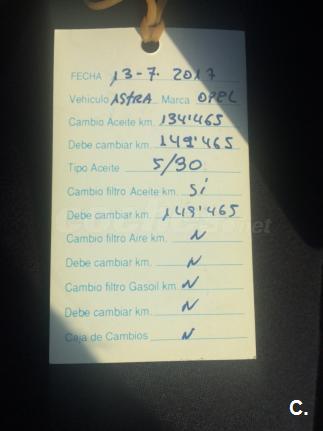 FECHA 13-7. 2017
Vehículo ASTRA Marca OPEL
Cambio Aceite km. 134'465
Debe cambiar km. 149'465
Tipo Aceite 5/30
Cambio filtro Aceite km. Sí
Debe cambiar km. 149'465
Cambio filtro Aire km. N
Debe cambiar km. N
Cambio filtro Gasoil km. N
Debe cambiar km. N
Caja de Cambios N
C.